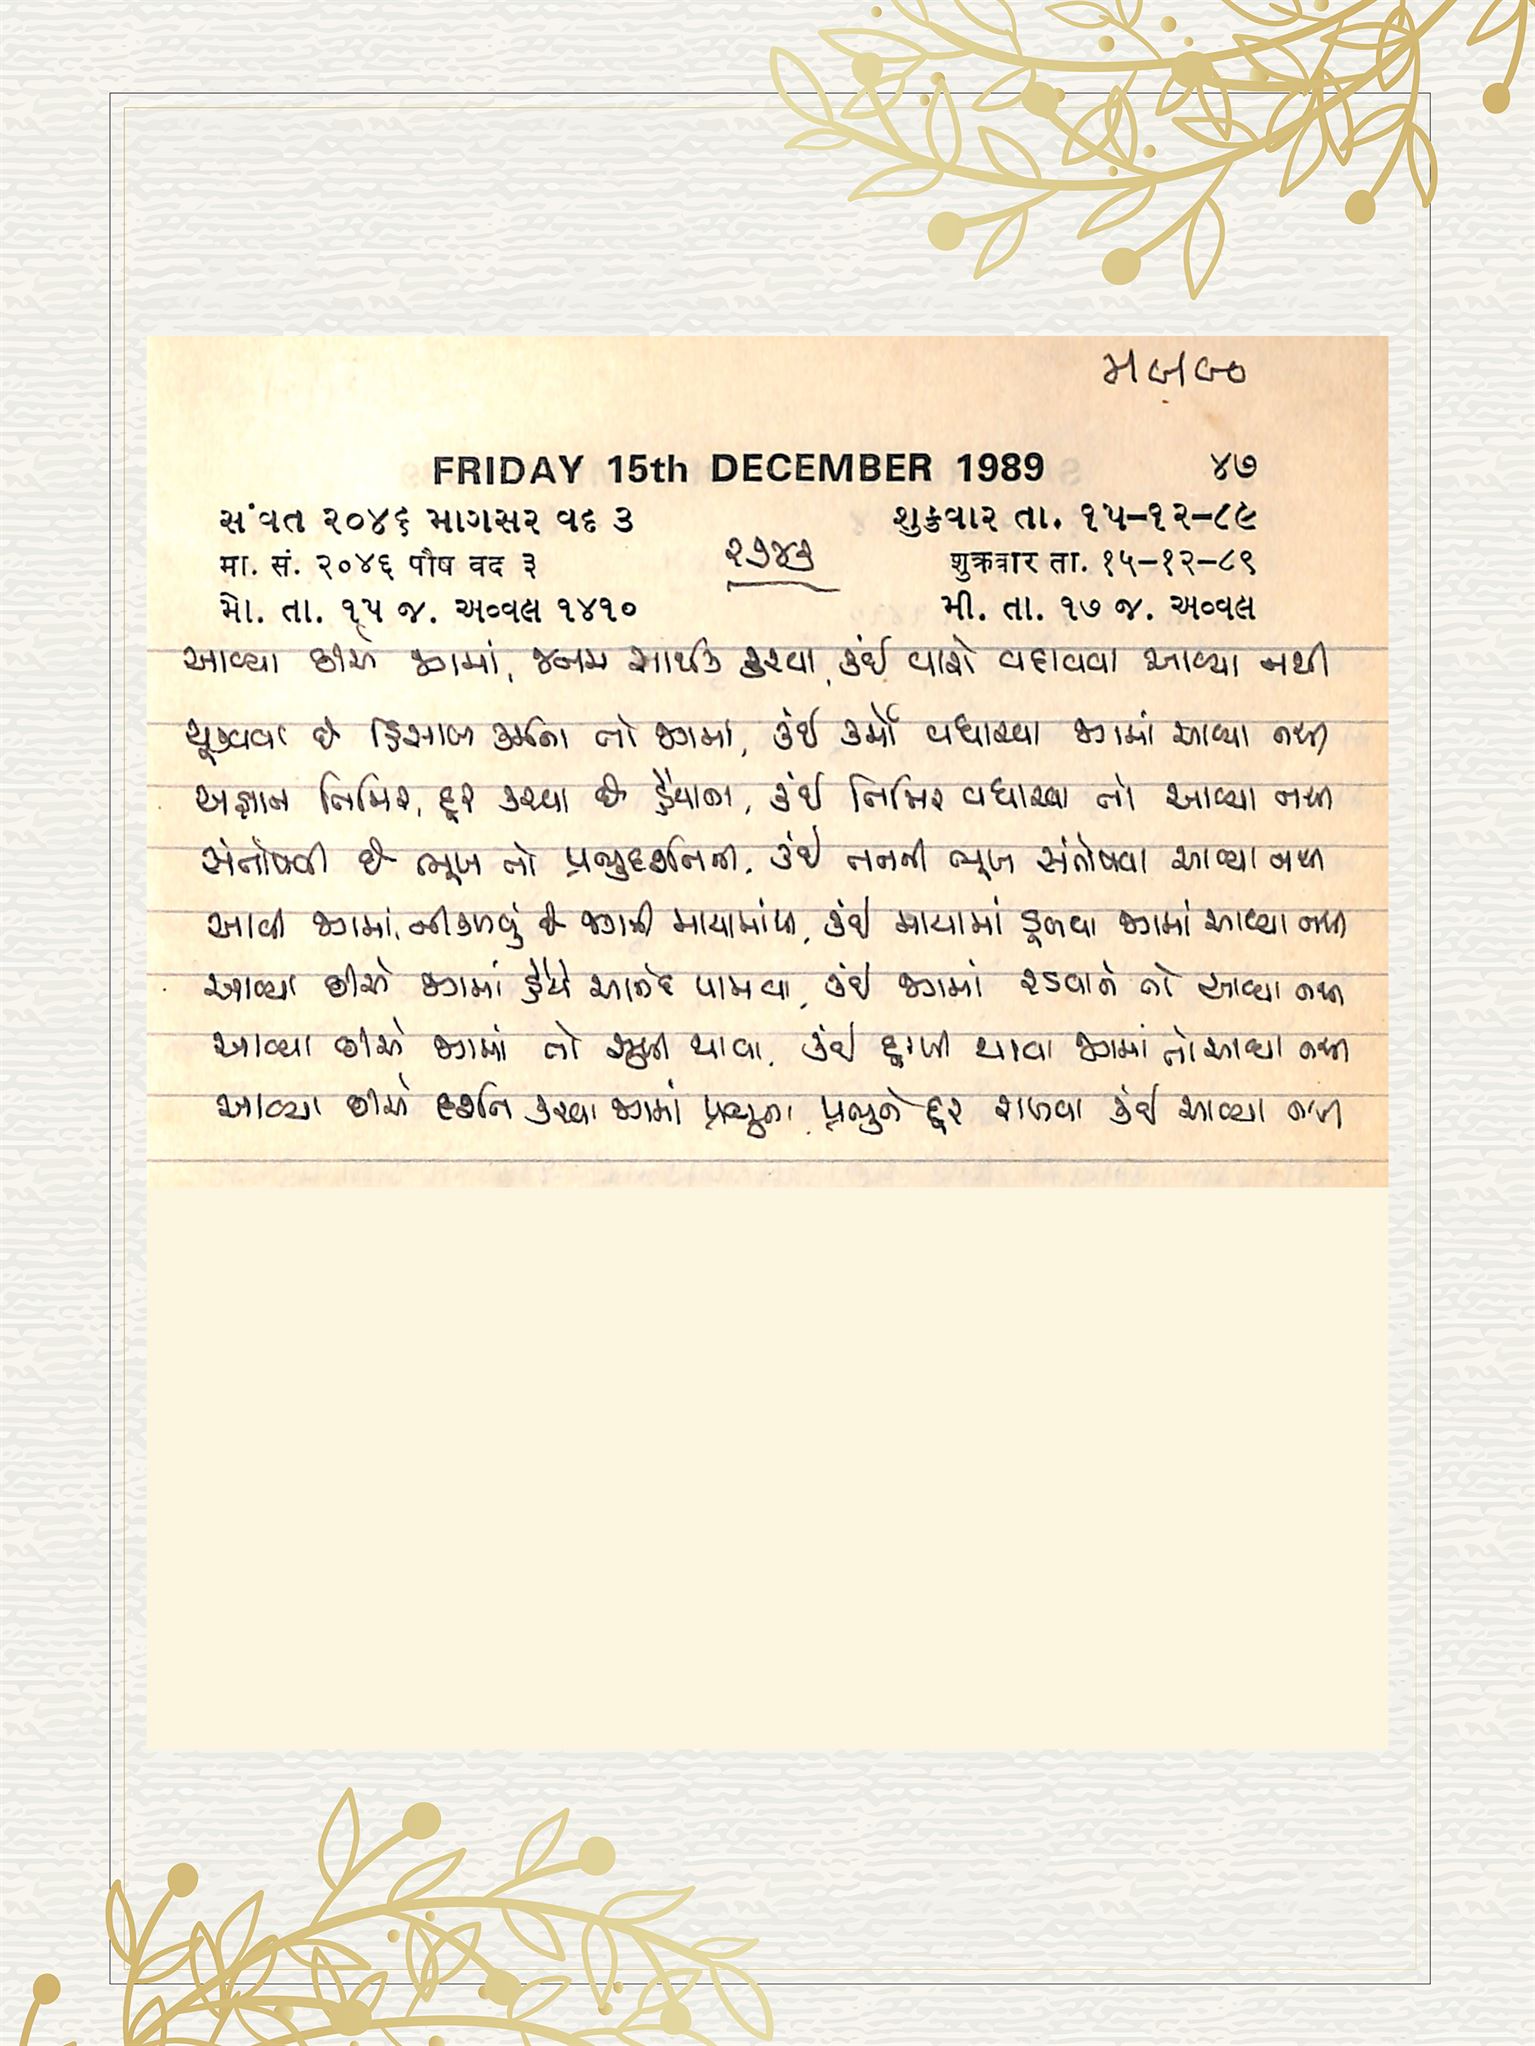 FRIDAY 15th DECEMBER 1989 ૪૭
સંવત ૨૦૪૬ માગસર વદ ૩ શુક્રવાર તા. ૧૫-૧૨-૮૯
૨૭૪૩
मा. सं. २०४६ पौष वद ३ शुक्रवार ता. १५-१२-८९
મો. તા. ૧૫ જ. અવ્વલ ૧૪૧૦ મી. તા. ૧૭ જ. અવ્વલ
આવ્યા છીએ જગમાં, જનમ સાર્થક કરવા, કંઈ વારો વધાવવા આવ્યા નથી
ચૂકવવા છે હિસાબ કર્મના તો જગમાં, કંઈ કર્મો વધારવા જગમાં આવ્યા નથી
અજ્ઞાન તિમિર, દૂર કરવા છે હૈયાના, કંઈ તિમિર વધારવા તો આવ્યા નથી
સંતોષવી છે ભૂખ તો પ્રભુદર્શનની, કંઈ તનની ભૂખ સંતોષવા આવ્યા નથી
આવી જગમાં, નીકળવું છે જગની માયામાંથી, કંઈ માયામાં ડૂબવા જગમાં આવ્યા નથી
આવ્યા છીએ જગમાં હૈયે આનંદ પામવા, કંઈ જગમાં રડવાને તો આવ્યા નથી
આવ્યા છીએ જગમાં તો સુખી થાવા, કંઈ દુઃખી થાવા જગમાં તો આવ્યા નથી
આવ્યા છીએ દર્શન કરવા જગમાં પ્રભુના, પ્રભુને દૂર રાખવા કંઈ આવ્યા નથી